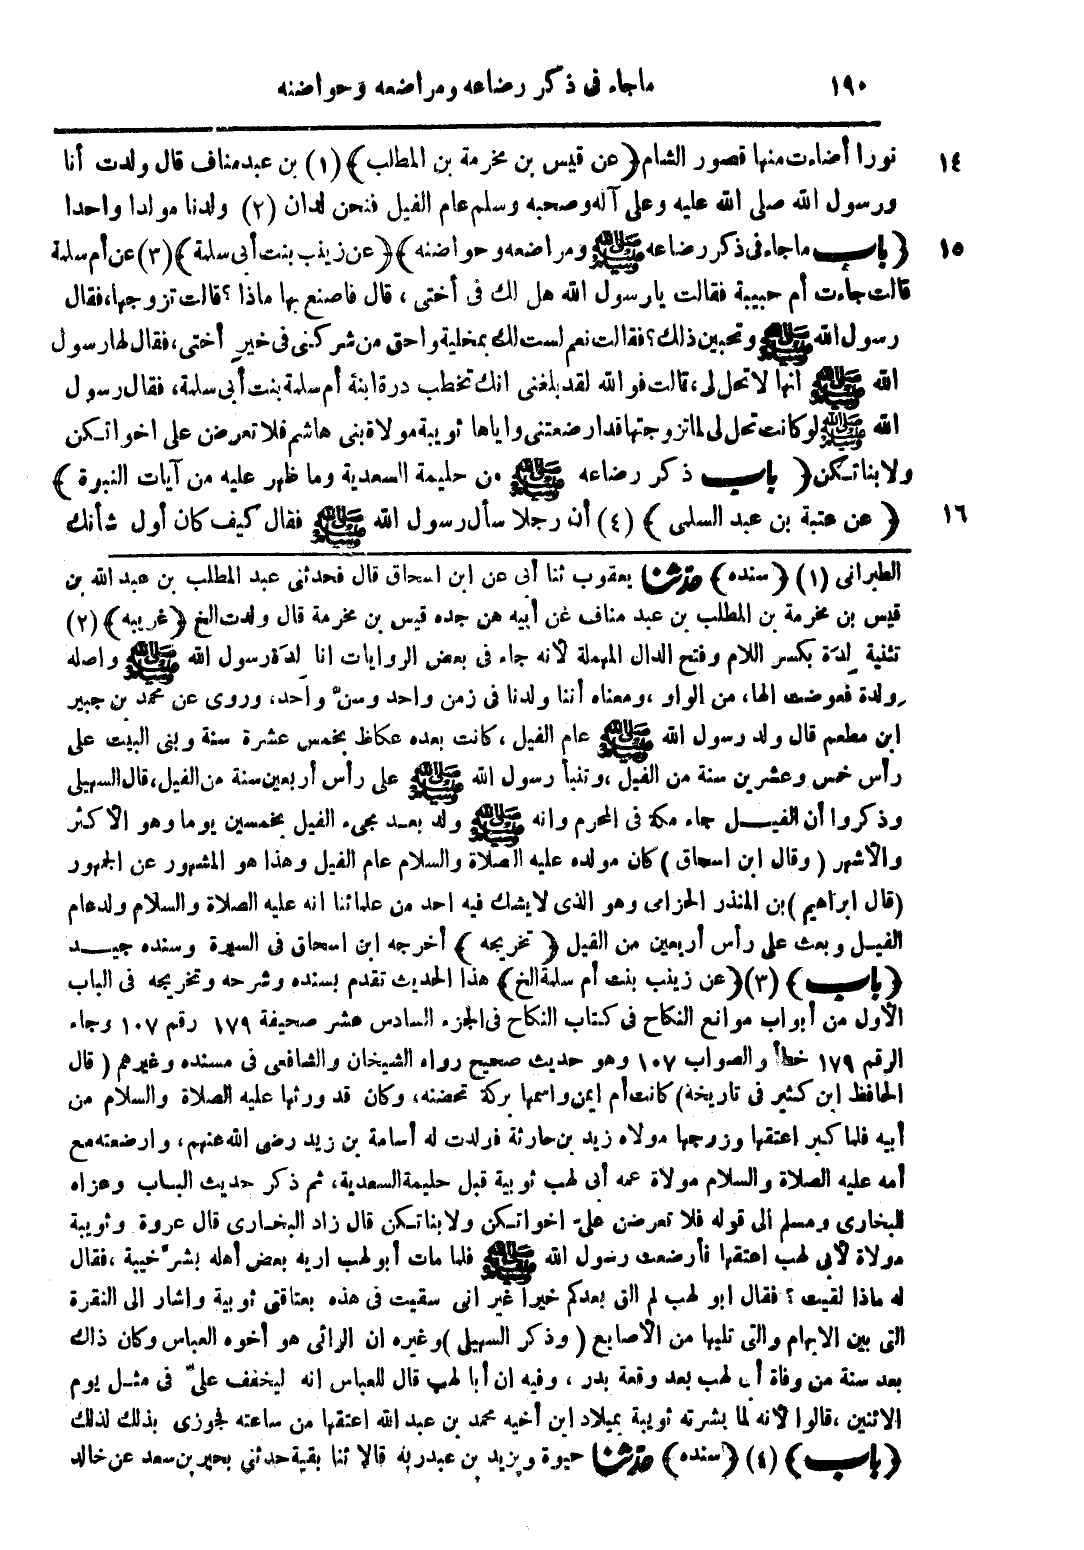 ١٩٠ ماجاء فى ذكر رضاعه ومراضعه وحواضنه
١٤ نورا أضاءت منها قصور الشام ﴿عن قيس بن مخرمة بن المطلب﴾ (١) بن عبد مناف قال ولدت أنا
ورسول الله صلى الله عليه وعلى آله وصحبه وسلم عام الفيل فنحن لدان (٢) ولدنا مولدا واحدا
١٥ ﴿باب ماجاء فى ذكر رضاعه ﷺ ومراضعه وحواضنه﴾ ﴿عن زينب بنت أبى سلمة﴾ (٣) عن أم سلمة
قالت جاءت أم حبيبة فقالت يارسول الله هل لك فى أختى ، قال فاصنع بها ماذا ؟ قالت تزوجها، فقال
رسول الله ﷺ وتحبين ذلك؟ فقالت نعم لست لك بمخلية واحق من شركنى فى خير أختى، فقال لها رسول
الله ﷺ انها لا تحل لى، قالت فو الله لقد بلغنى انك تخطب درة ابنة أم سلمة بنت أبى سلمة، فقال رسول
الله ﷺ لو كانت تحل لى لما تزوجتها قد ارضعتنى واياها ثويبة مولاة بنى هاشم فلا تعرضن على اخواتكن
ولا بناتكن ﴿ باب ذكر رضاعه ﷺ من حليمة السعدية وما ظهر عليه من آيات النبوة ﴾
١٦ ﴿ عن عتبة بن عبد السلمى ﴾ (٤) أن رجلا سأل رسول الله ﷺ فقال كيف كان أول شأنك
الطبرانى (١) ﴿سنده﴾ حدثنا يعقوب ثنا أبى عن ابن اسحاق قال فحدثنى عبد المطلب بن عبد الله بن
قيس بن مخرمة بن المطلب بن عبد مناف عن أبيه عن جده قيس بن مخرمة قال ولدت الخ ﴿غريبه﴾ (٢)
تثنية لدة بكسر اللام وفتح الدال المهملة لأنه جاء فى بعض الروايات انا لدة رسول الله ﷺ واصله
ولدة فعوضت الهاء من الواو ، ومعناه أننا ولدنا فى زمن واحد وسنّ واحد، وروى عن محمد بن جبير
ابن مطعم قال ولد رسول الله ﷺ عام الفيل ، كانت بعده عكاظ بخمس عشرة سنة وبنى البيت على
رأس خمس وعشرين سنة من الفيل ، وتنبأ رسول الله ﷺ على رأس أربعين سنة من الفيل، قال السهيلى
وذكروا أن الفيل جاء مكة فى المحرم وانه ﷺ ولد بعد مجىء الفيل بخمسين يوما وهو الأكثر
والأشهر ( وقال ابن اسحاق ) كان مولده عليه الصلاة والسلام عام الفيل وهذا هو المشهور عن الجمهور
(قال ابراهيم ) بن المنذر الحزامى وهو الذى لايشك فيه احد من علمائنا انه عليه الصلاة والسلام ولد عام
الفيل وبعث على رأس أربعين من الفيل ﴿ تخريجه ﴾ أخرجه ابن اسحاق فى السيرة وسنده جيد
﴿باب﴾ (٣) ﴿عن زينب بنت أم سلمة الخ﴾ هذا الحديث تقدم بسنده وشرحه وتخريجه فى الباب
الأول من أبواب موانع النكاح فى كتاب النكاح فى الجزء السادس عشر صحيفة ١٧٩ رقم ١٠٧ وجاء
الرقم ١٧٩ خطأ والصواب ١٠٧ وهو حديث صحيح رواه الشيخان والشافعى فى مسنده وغيرهم ( قال
الحافظ ابن كثير فى تاريخه) كانت أم ايمن واسمها بركة تحضنه، وكان قد ورثها عليه الصلاة والسلام من
أبيه فلما كبر اعتقها وزوجها مولاه زيد بن حارثة فولدت له أسامة بن زيد رضى الله عنهم، وارضعته مع
أمه عليه الصلاة والسلام مولاة عمه أبى لهب ثويبة قبل حليمة السعدية، ثم ذكر حديث الباب وعزاه
للبخارى ومسلم الى قوله فلا تعرضن علىّ اخواتكن ولا بناتكن قال زاد البخارى قال عروة وثويبة
مولاة لأبى لهب اعتقها فأرضعت رسول الله ﷺ فلما مات أبو لهب اريه بعض أهله بشرّ خيبة ، فقال
له ماذا لقيت ؟ فقال ابو لهب لم الق بعدكم خيرا غير انى سقيت فى هذه بعتاقتى ثويبة واشار الى النقرة
التى بين الابهام والتى تليها من الأصابع ( وذكر السهيلى ) وغيره ان الرائى هو أخوه العباس وكان ذاك
بعد سنة من وفاة أبى لهب بعد وقعة بدر ، وفيه ان أبا لهب قال للعباس انه ليخفف علىّ فى مثل يوم
الاثنين ، قالوا لأنه لما بشرته ثويبة بميلاد ابن أخيه محمد بن عبد الله اعتقها من ساعته فجوزى بذلك لذلك
﴿باب﴾ (٤) ﴿سنده﴾ حدثنا حيوة ويزيد بن عبد ربه قالا ثنا بقية حدثنى بحير بن سعد عن خالد